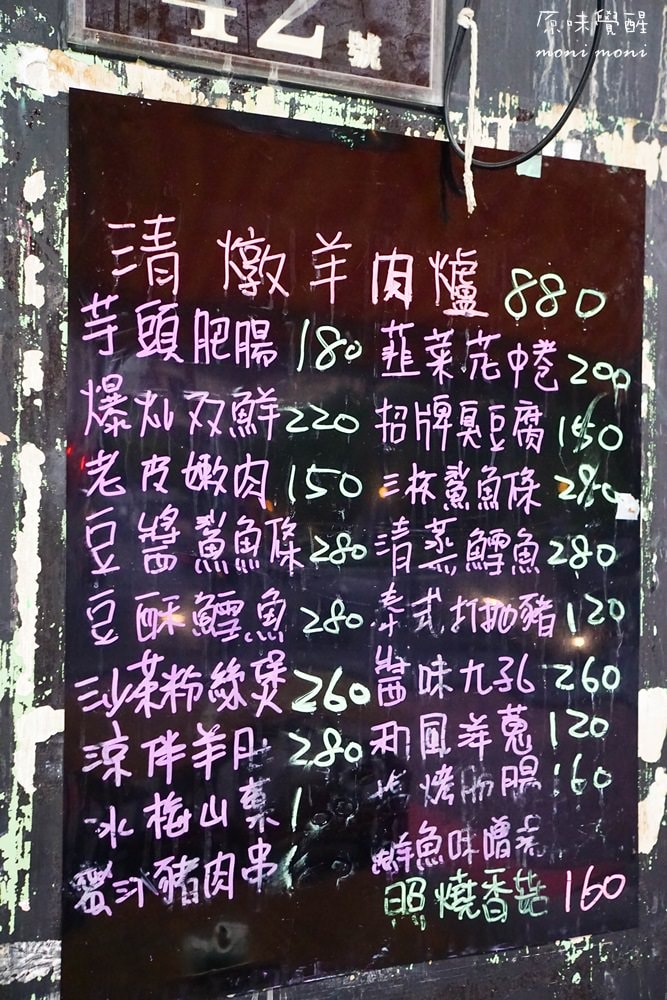 原味覺醒
moni moni
42號
清燉羊肉爐 880
芋頭肥腸 180
韮菜花中卷 200
爆炒双鮮 220
招牌臭豆腐 150
老皮嫩肉 150
三杯鯊魚條 280
豆醬鯊魚條 280
清蒸鱈魚 280
豆酥鱈魚 280
泰式打拋豬 120
沙茶粉絲煲 260
醬味九孔 260
涼伴羊 280
和風洋蔥 120
冰梅山藥 1
烤肥腸 160
蜜汁豬肉串
鮮魚味噌
照燒香菇 160